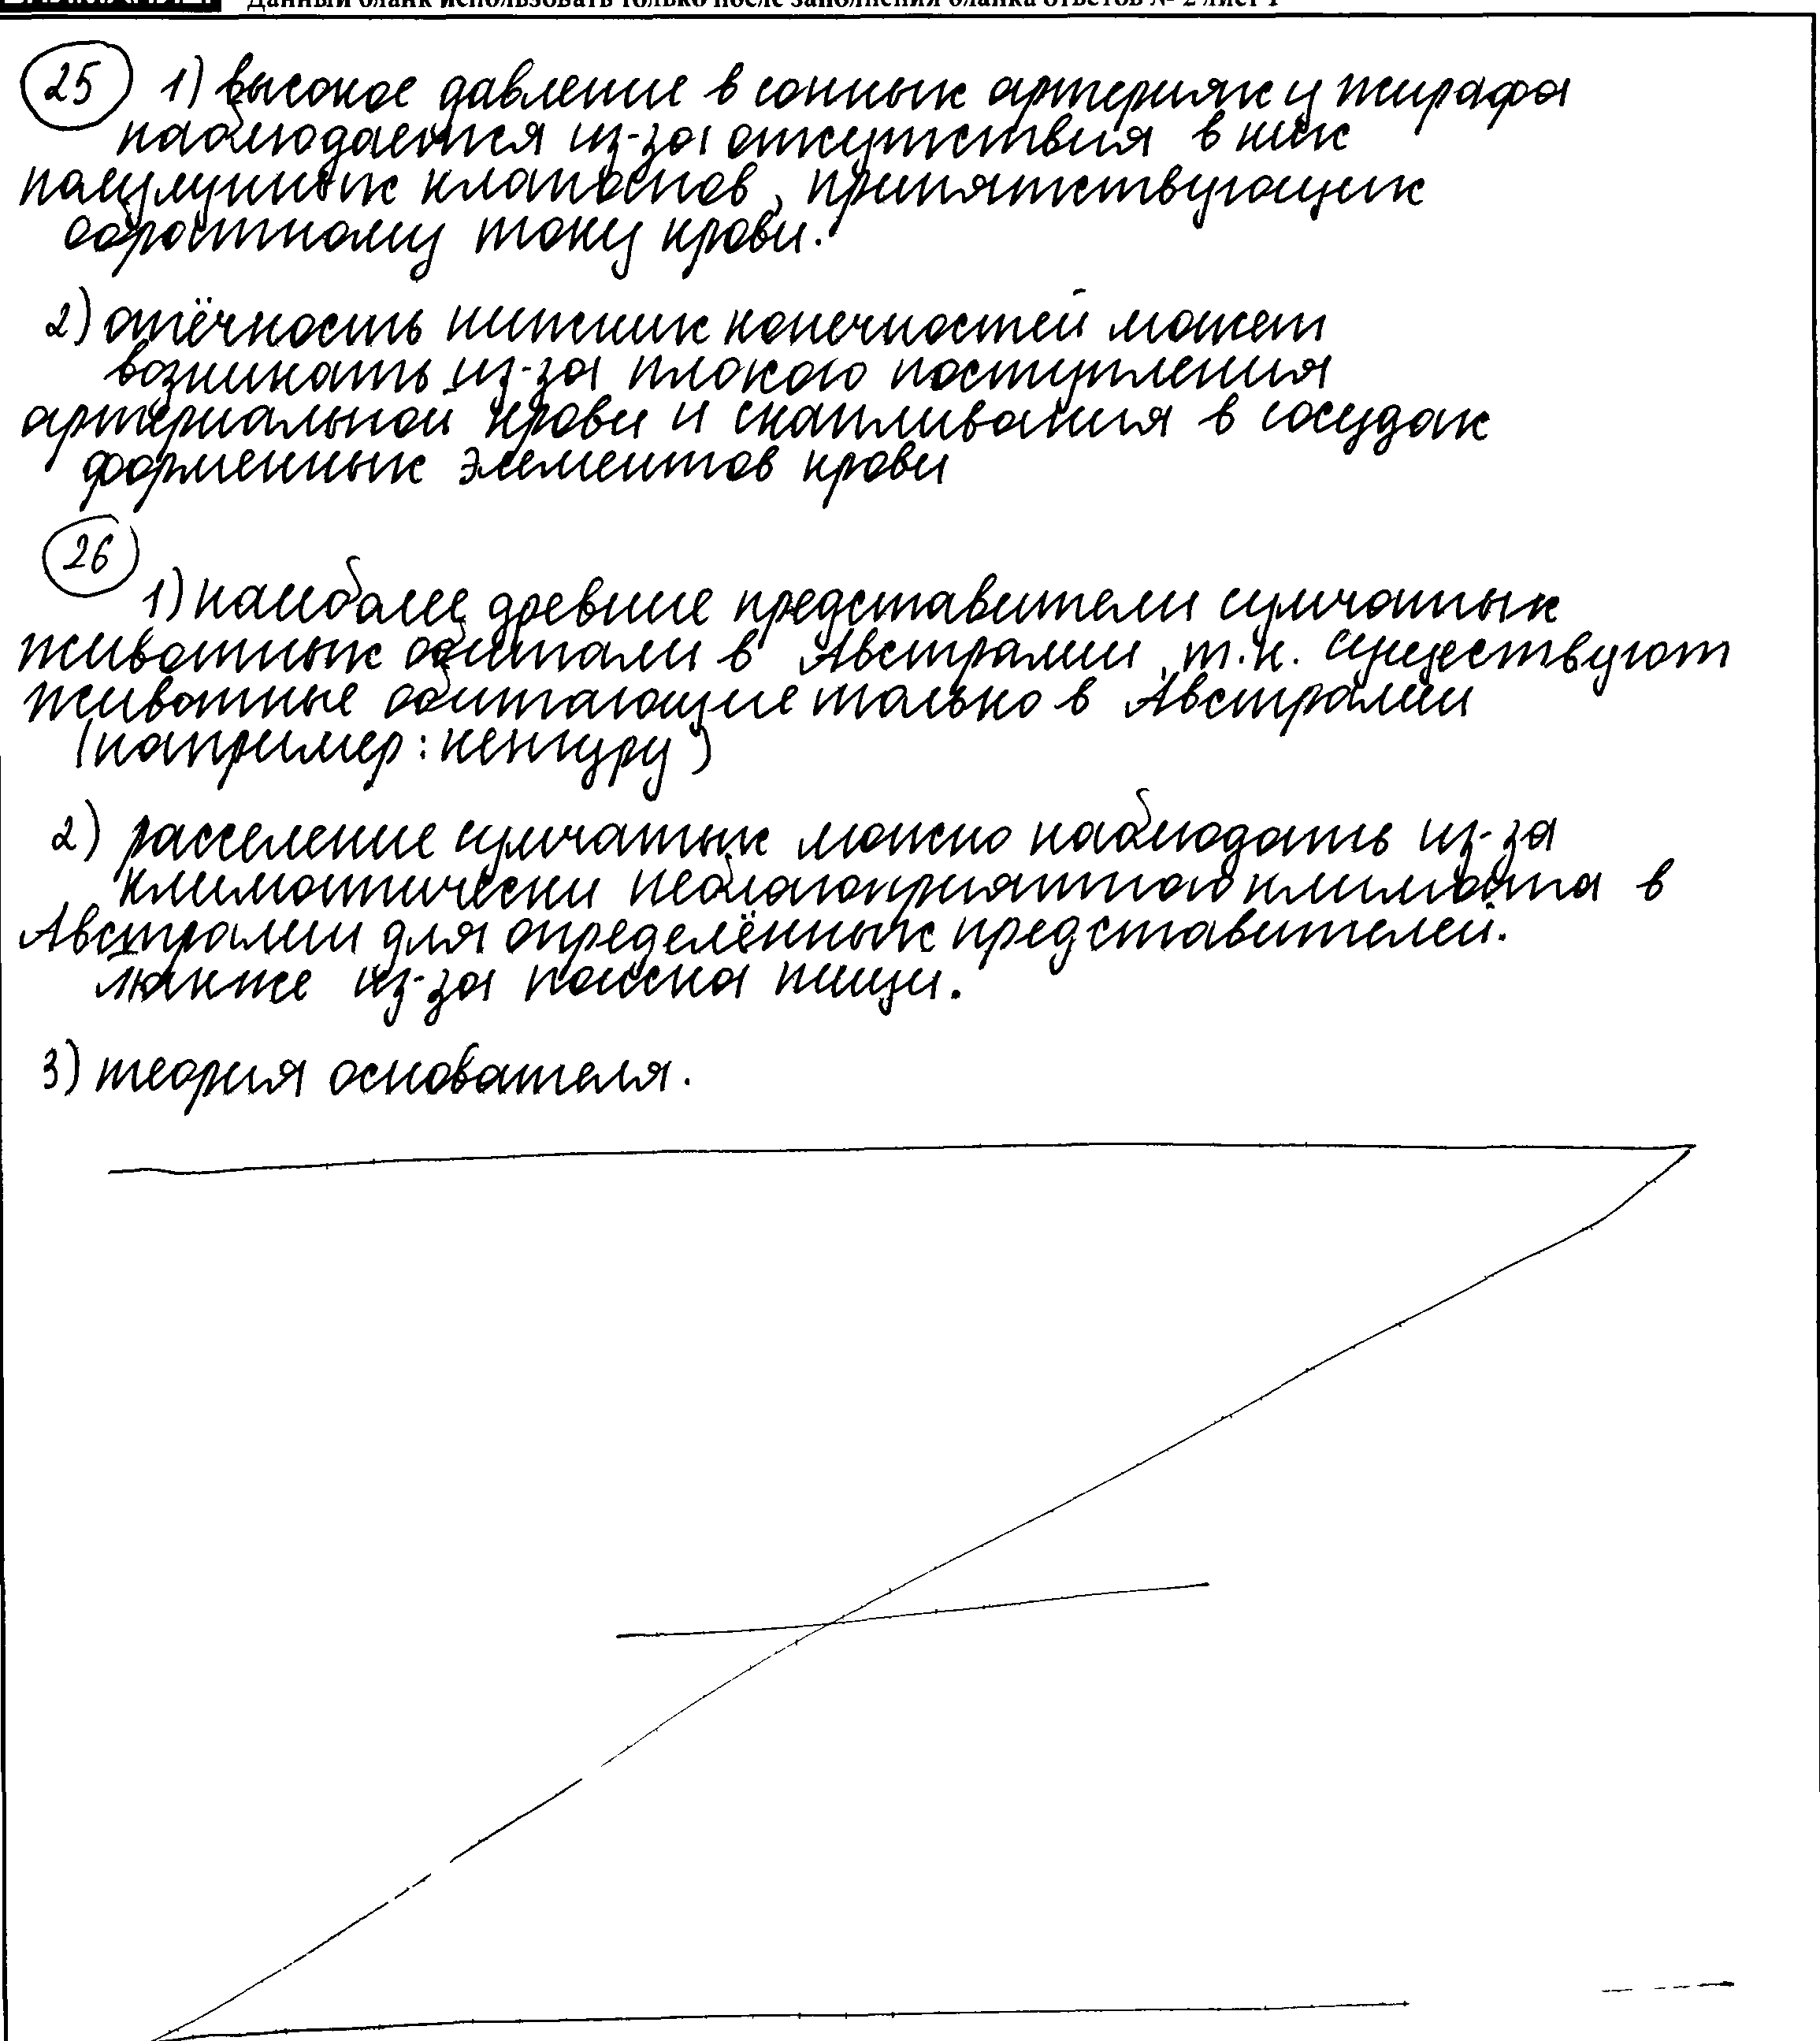 Данный бланк использовать только после заполнения бланка ответов № 2 лист 1
25 1) высокое давление в сонных артериях у жирафа
наблюдается из-за отсутствия в них
полулунных клапанов, припятствующих
обратному току крови.
2) отёчность нижних конечностей может
возникать из-за плохого поступления
артериальной крови и скапливания в сосудах
форменных элементов крови
26
1) наиболее древние представители сумчатых
животных обитали в Австралии, т.к. существуют
животные обитающие только в Австралии
(например: кенгуру)
2) расселение сумчатых можно наблюдать из-за
климатически неблагоприятного климата в
Австралии для определённых представителей.
также из-за поиска пищи.
3) теория основателя.